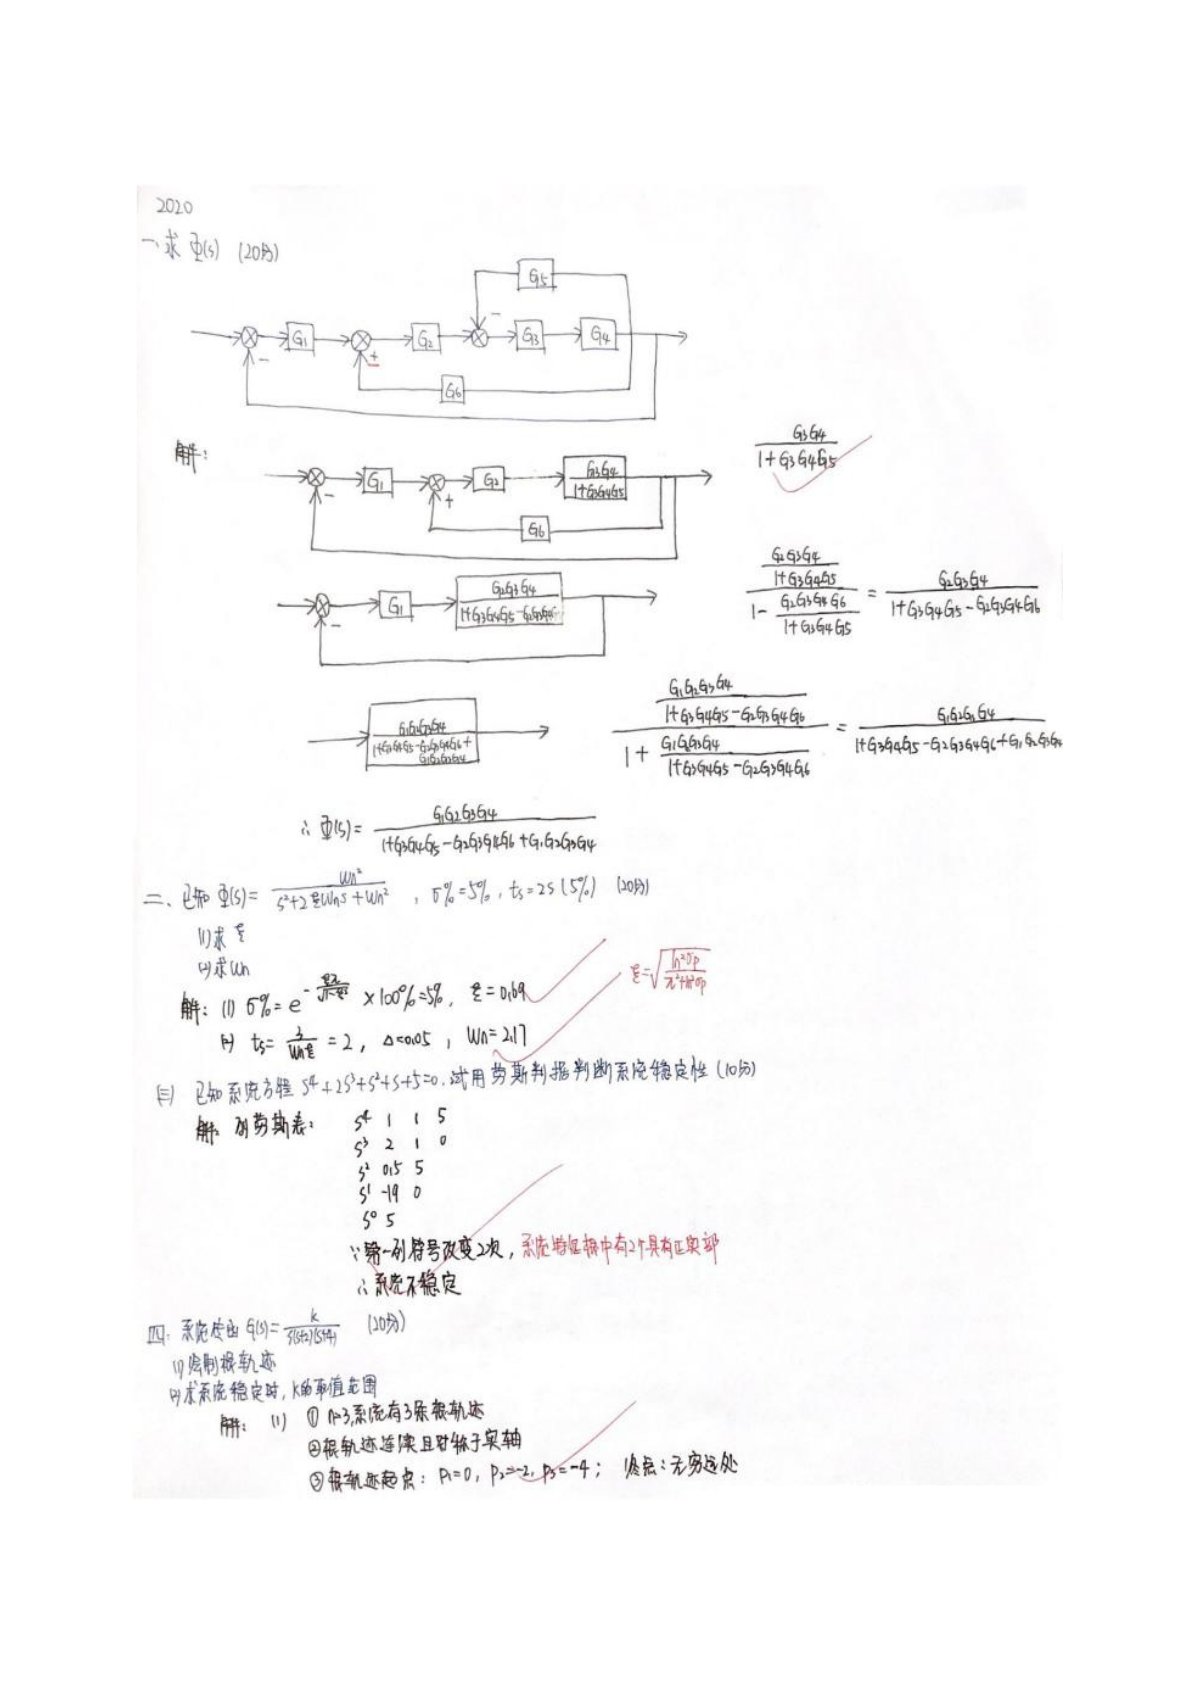 2020
一、求 Φ(s) (20分)
G5
G1 G2 G3 G4
- + -
G6
解:
G1 G2 G3G4/(1+G3G4G5)
- +
G6
G3G4/(1+G3G4G5)
G1 G2G3G4/(1+G3G4G5-G2G3G4G6)
-
(G2G3G4/(1+G3G4G5))/(1-G2G3G4G6/(1+G3G4G5)) = G2G3G4/(1+G3G4G5-G2G3G4G6)
G1G2G3G4/(1+G3G4G5-G2G3G4G6+G1G2G3G4)
(G1G2G3G4/(1+G3G4G5-G2G3G4G6))/(1+G1G2G3G4/(1+G3G4G5-G2G3G4G6)) = G1G2G3G4/(1+G3G4G5-G2G3G4G6+G1G2G3G4)
∴ Φ(s)= G1G2G3G4/(1+G3G4G5-G2G3G4G6+G1G2G3G4)
二、已知 Φ(s)= Wn²/(s²+2ξWns+Wn²), σ%=5%, ts=2s (5%) (20分)
(1)求 ξ
(2)求Wn
解: (1) σ%=e^(-ξπ/√(1-ξ²)) ×100%=5%, ξ=0.69
ξ=√(ln²σp/(π²+ln²σp))
(2) ts= 3/(Wnξ) =2, Δ=0.05, Wn=2.17
(三) 已知系统方程 S⁴+2S³+S²+S+5=0, 试用劳斯判据判断系统稳定性 (10分)
解: 列劳斯表:
S⁴ 1 1 5
S³ 2 1 0
S² 0.5 5
S¹ -19 0
S⁰ 5
∵第一列符号改变2次, 系统特征根中有2个具有正实部
∴系统不稳定
四. 系统传函 G(s)= k/(s(s+2)(s+4)) (20分)
(1)绘制根轨迹
(2)求系统稳定时, K的取值范围
解: (1) ① n=3,系统有3条根轨迹
②根轨迹连续且对称于实轴
③根轨迹起点: P1=0, P2=-2, P3=-4; 终点:无穷远处